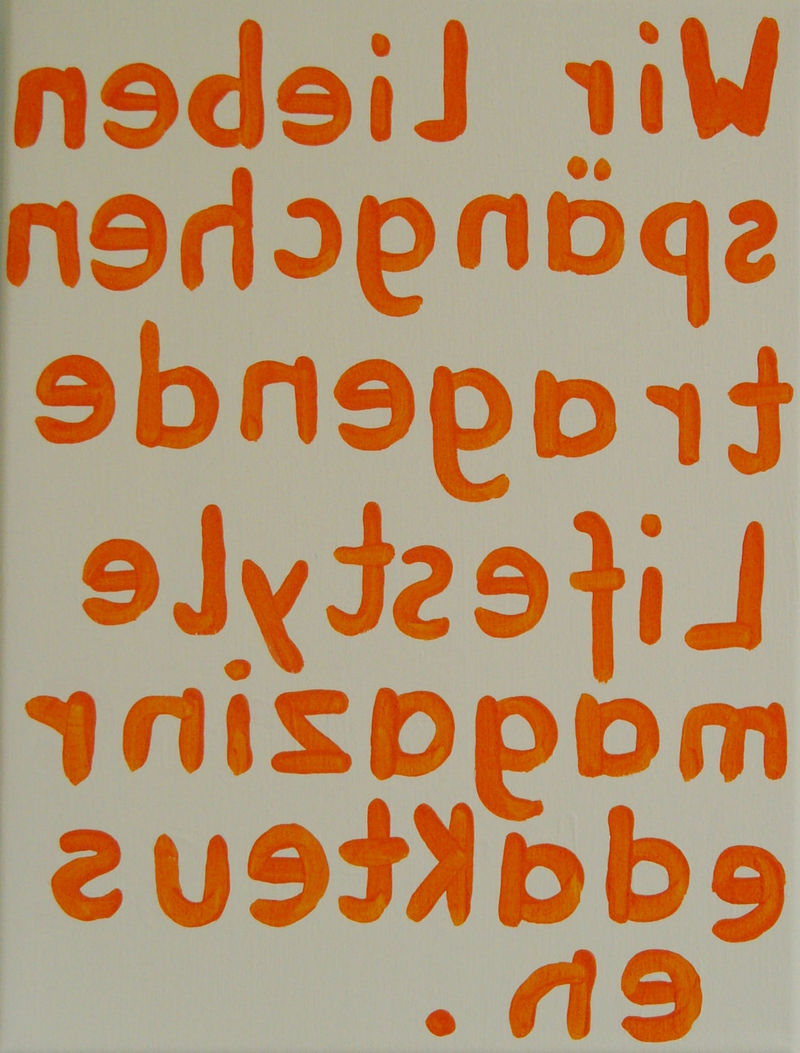 Wir Lieben
spängchen
tragende
Lifestyle
magazinr
edakteus
en.